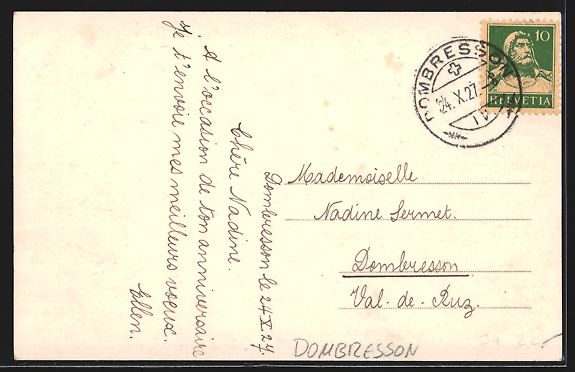 Dombresson le 24 X 27.
Chère Nadine.
A l'occasion de ton anniversaire
je t'envoie mes meilleurs voeux.
Ellen.
Mademoiselle
Nadine Sermet.
Dombresson
Val-de-Ruz.
DOMBRESSON
24.X.27.
10
HELVETIA
DOMBRESSON